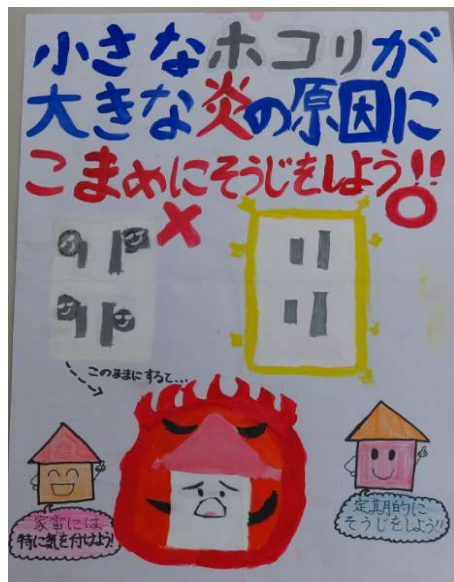 小さなホコリが
大きな炎の原因に
こまめにそうじをしよう!!
このままにすると...
家電には、
特に気を付けよう!
定期的に
そうじをしよう!!